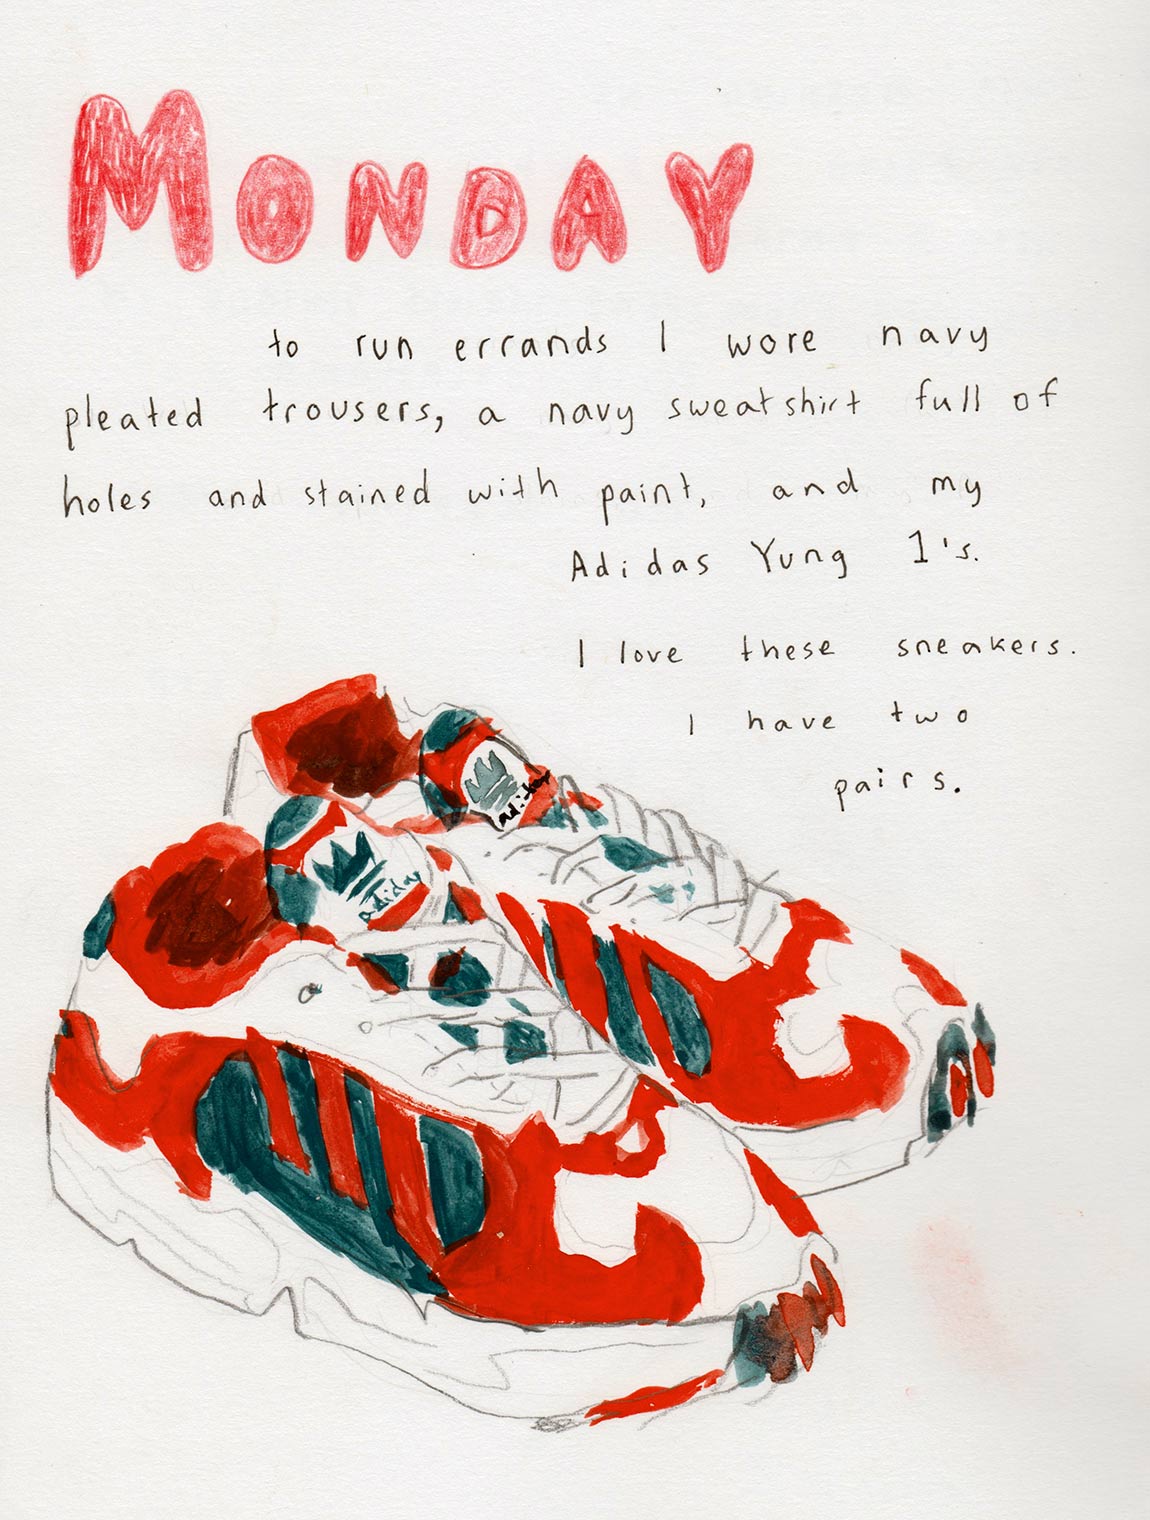 MONDAY
to run errands I wore navy
pleated trousers, a navy sweatshirt full of
holes and stained with paint, and my
Adidas Yung 1's.
I love these sneakers.
I have two
pairs.
adidas
adidas